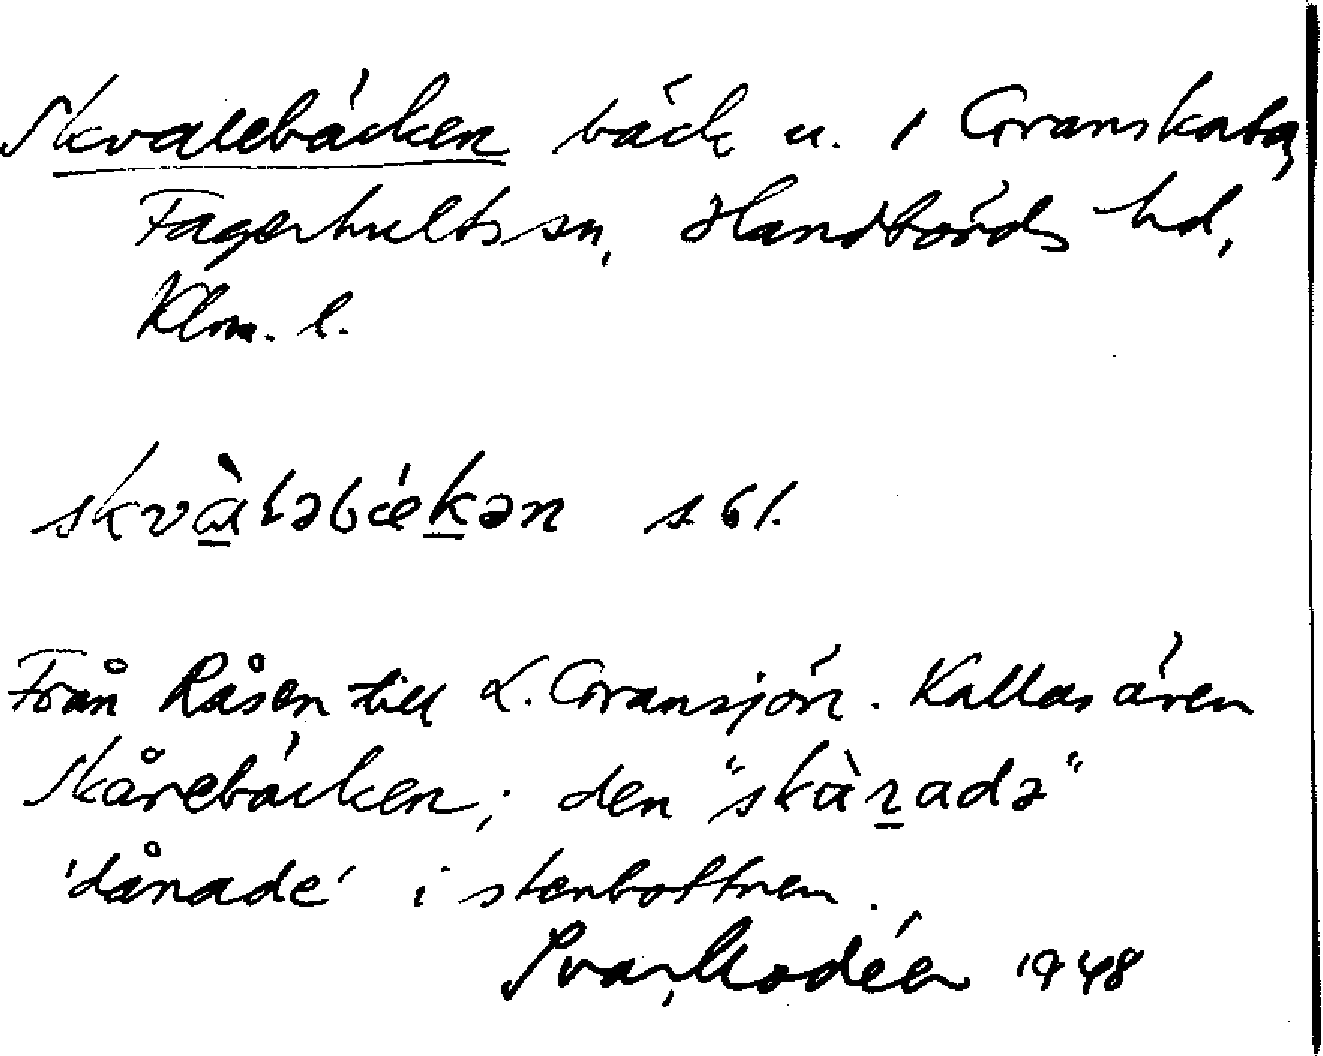 Skvalebäcken bäck u. 1 Granskata,
Fagerhults sn, Handbörds hd,
Klm. l.
skvàləbækən s. bf.
Från Råsen till L. Gransjön. Kallas även
Skårebäcken; den "skàradə"
'dånade' i stenbottnen.
Ivar Modéer 1948